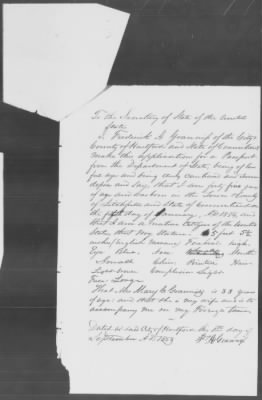 To the Secretary of State of the United
State
I, Frederick A. of the City
County of Hartford and State of Connecticut
make this application for a Passport
from the Department of State, being of law
ful age and being duly cautioned and sworn
depose and say, that I am forty five years
of age and was born in the Town of
of Litchfield and State of Connecticut on
the day of January, AD 18
that I am a native Citizen of the United
States, that my Stature 5 feet 5½
inches English measure Forehead high
Eyes Blue. Nose Mouth
Small Chin. Hair
Light brown Complexion Light
Face Long
That Mrs Mary C. is 33 years
of age, and that she is my wife and is to
accompany me on my Foreign tour
Dated at said City of Hartford the day of
September A.D. 18